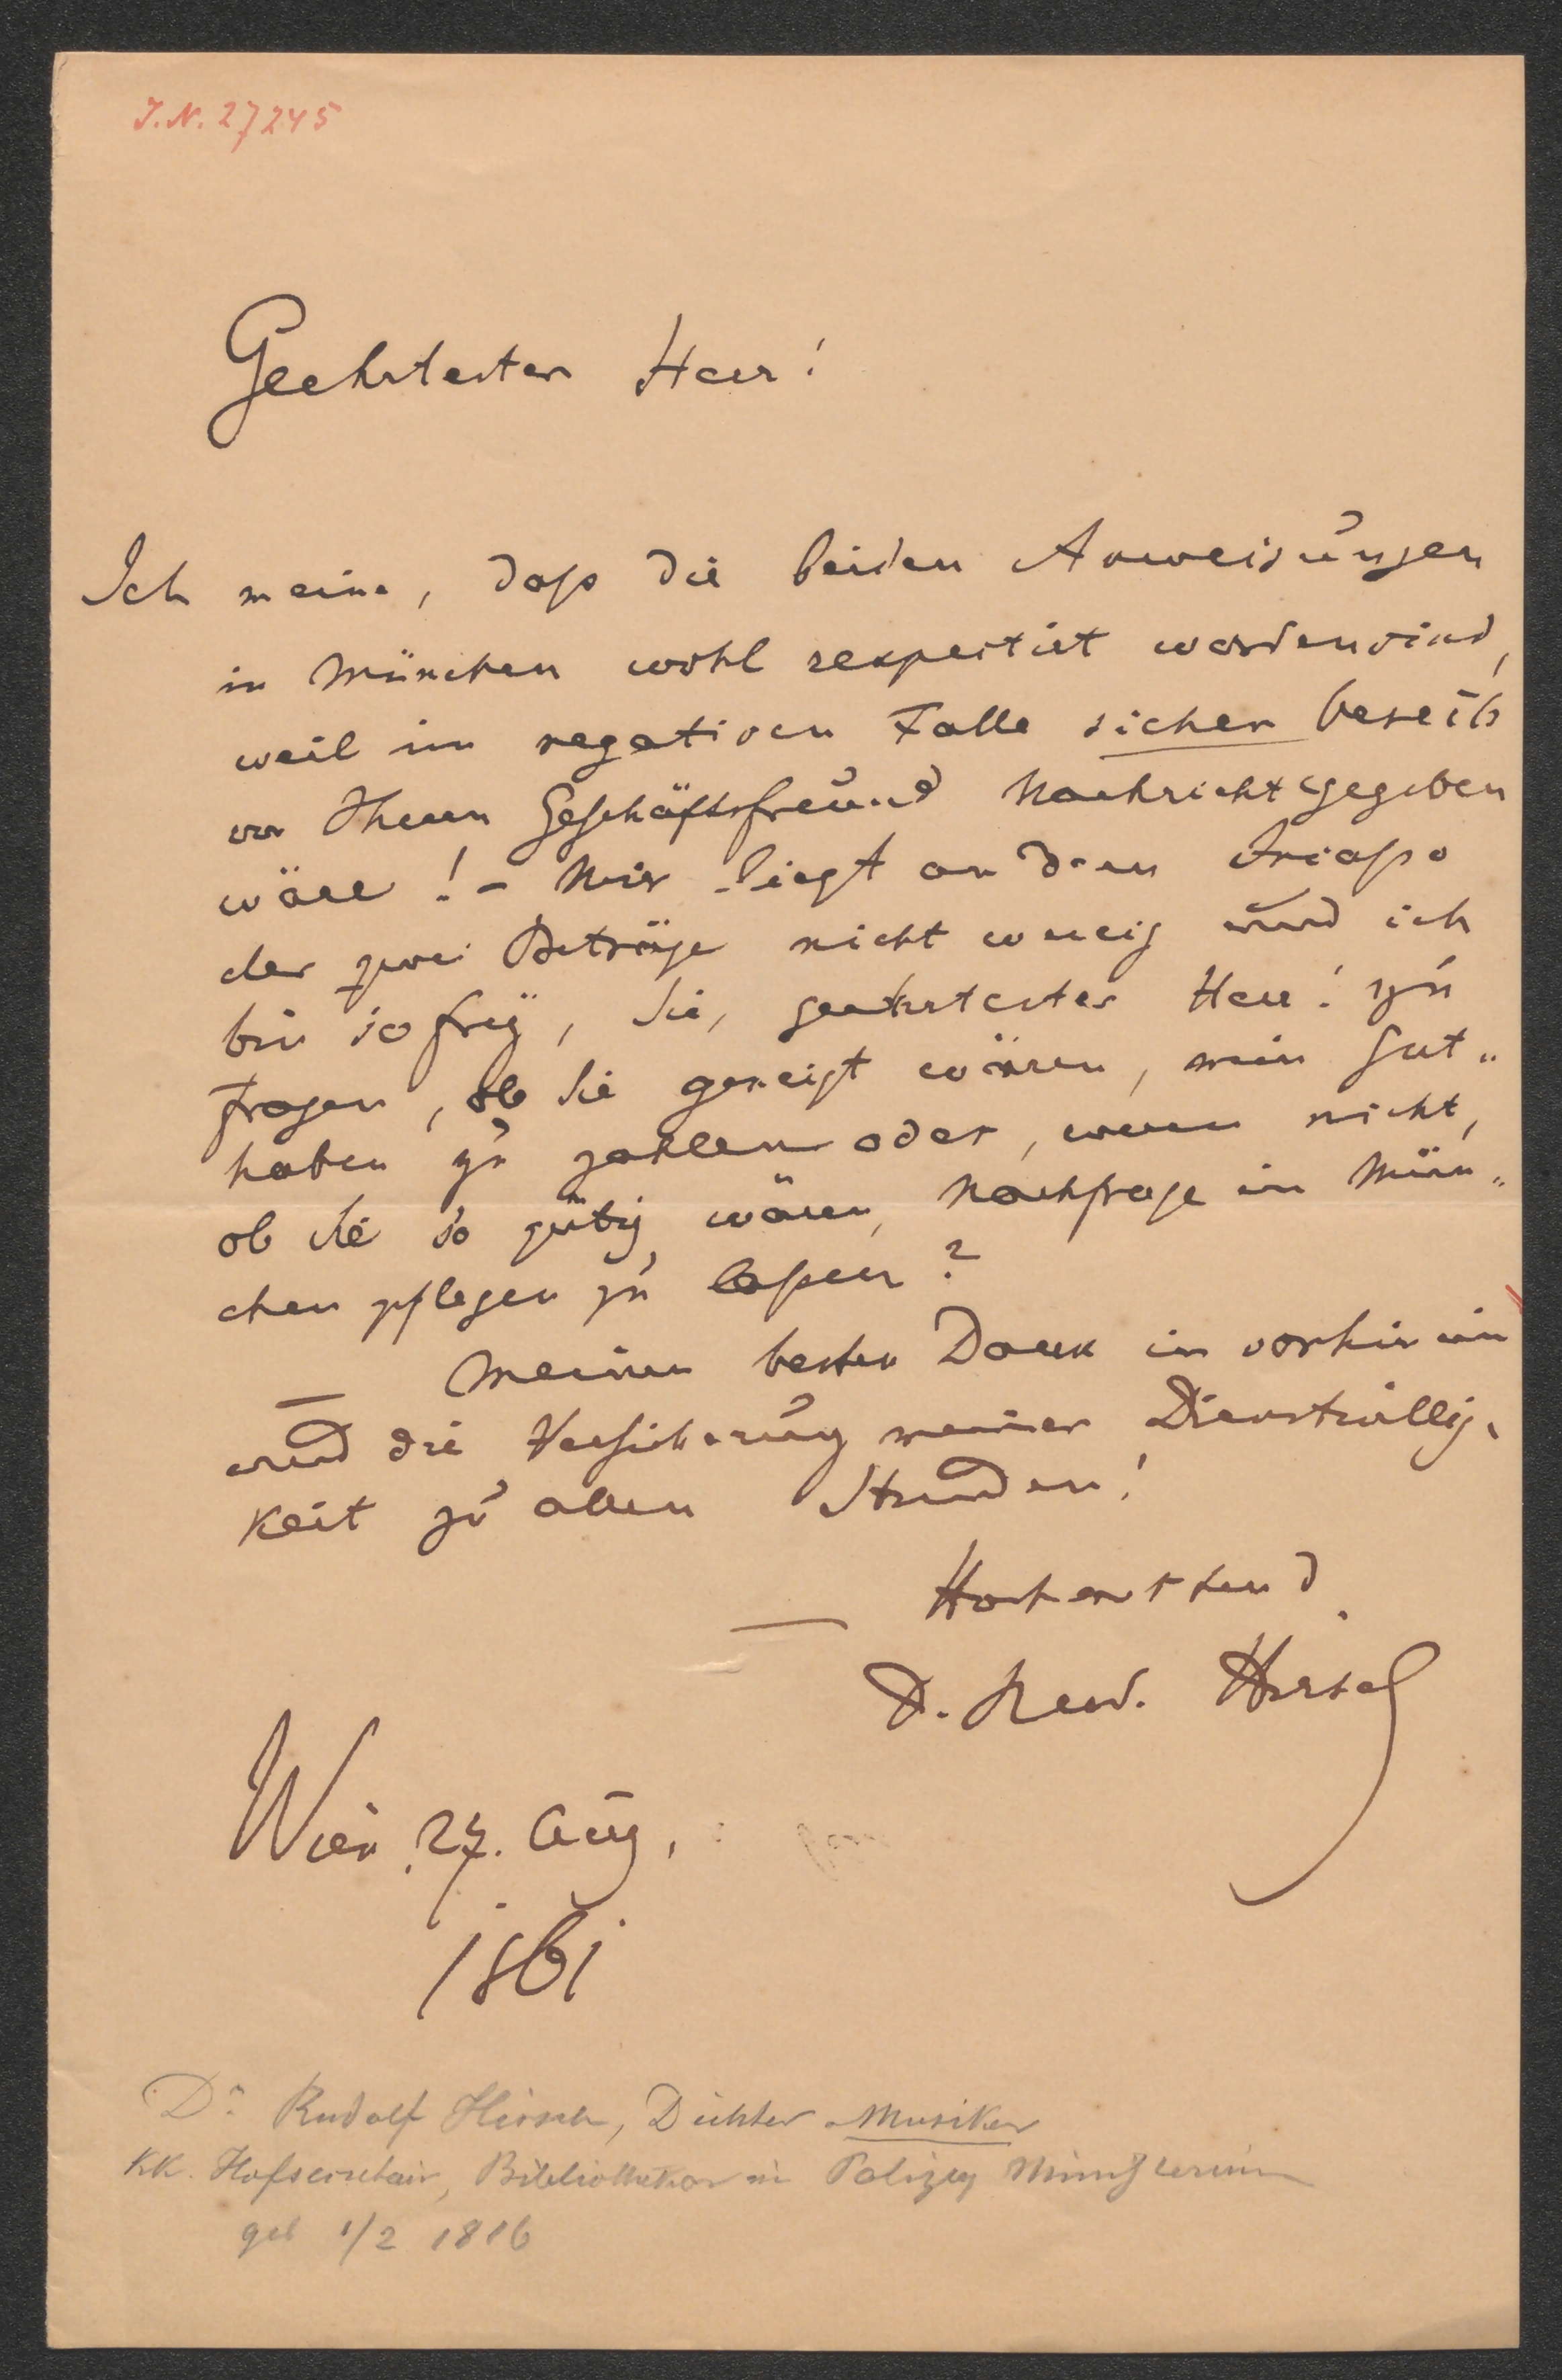 J.N. 27245
Geehrtester Herr!
Ich meine, daß die beiden Anweisungen
in München wohl respectirt worden sind,
weil im negativen Falle sicher bereits
von Ihrem Geschäftsfreund Nachricht gegeben
wäre! – Mir liegt an dem Incasso
der zwei Beträge nicht wenig und ich
bin so frey, Sie, geehrtester Herr! zu
fragen, ob Sie geneigt wären, mein Gut„
haben zu zahlen oder, wenn nicht,
ob Sie so gütig wären, Nachfrage in Mün„
chen pflegen zu lassen?
– Meinen besten Dank im vorhinein
und die Versicherung meiner Dienstwillig-
keit zu allen Stunden!
— Hochachtend
D. Rud. Hirsch
Wien 27. Aug,
1861
Dr Rudolf Hirsch, Dichter Musiker
KK. Hofsecretair, Bibliothekar in Polizey Ministerium
geb 1/2 1816